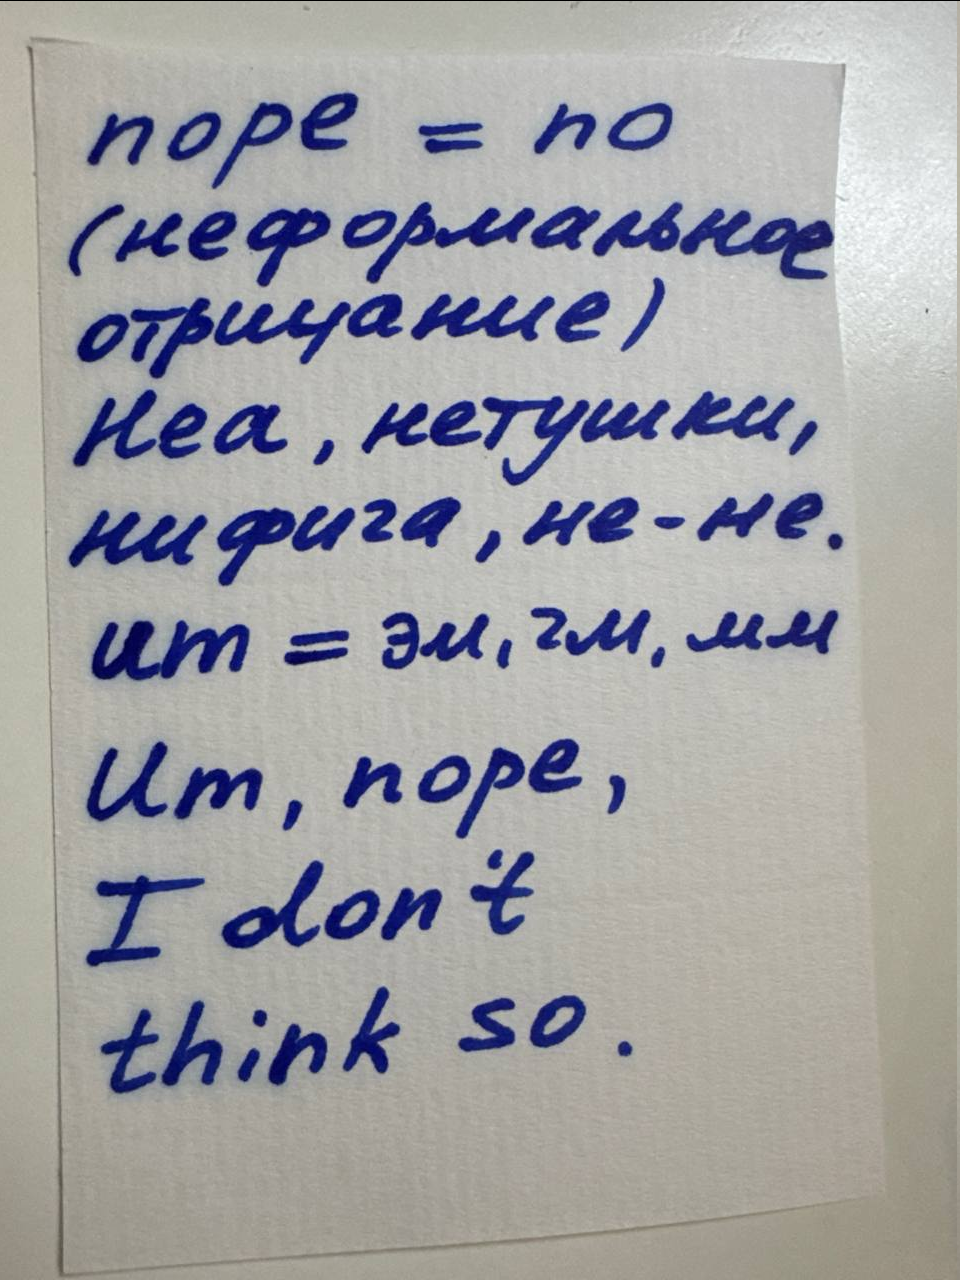 nope = no
(неформальное
отрицание)
Неа, нетушки,
нифига, не-не.
um = эм, гм, мм
Um, nope,
I don't
think so.